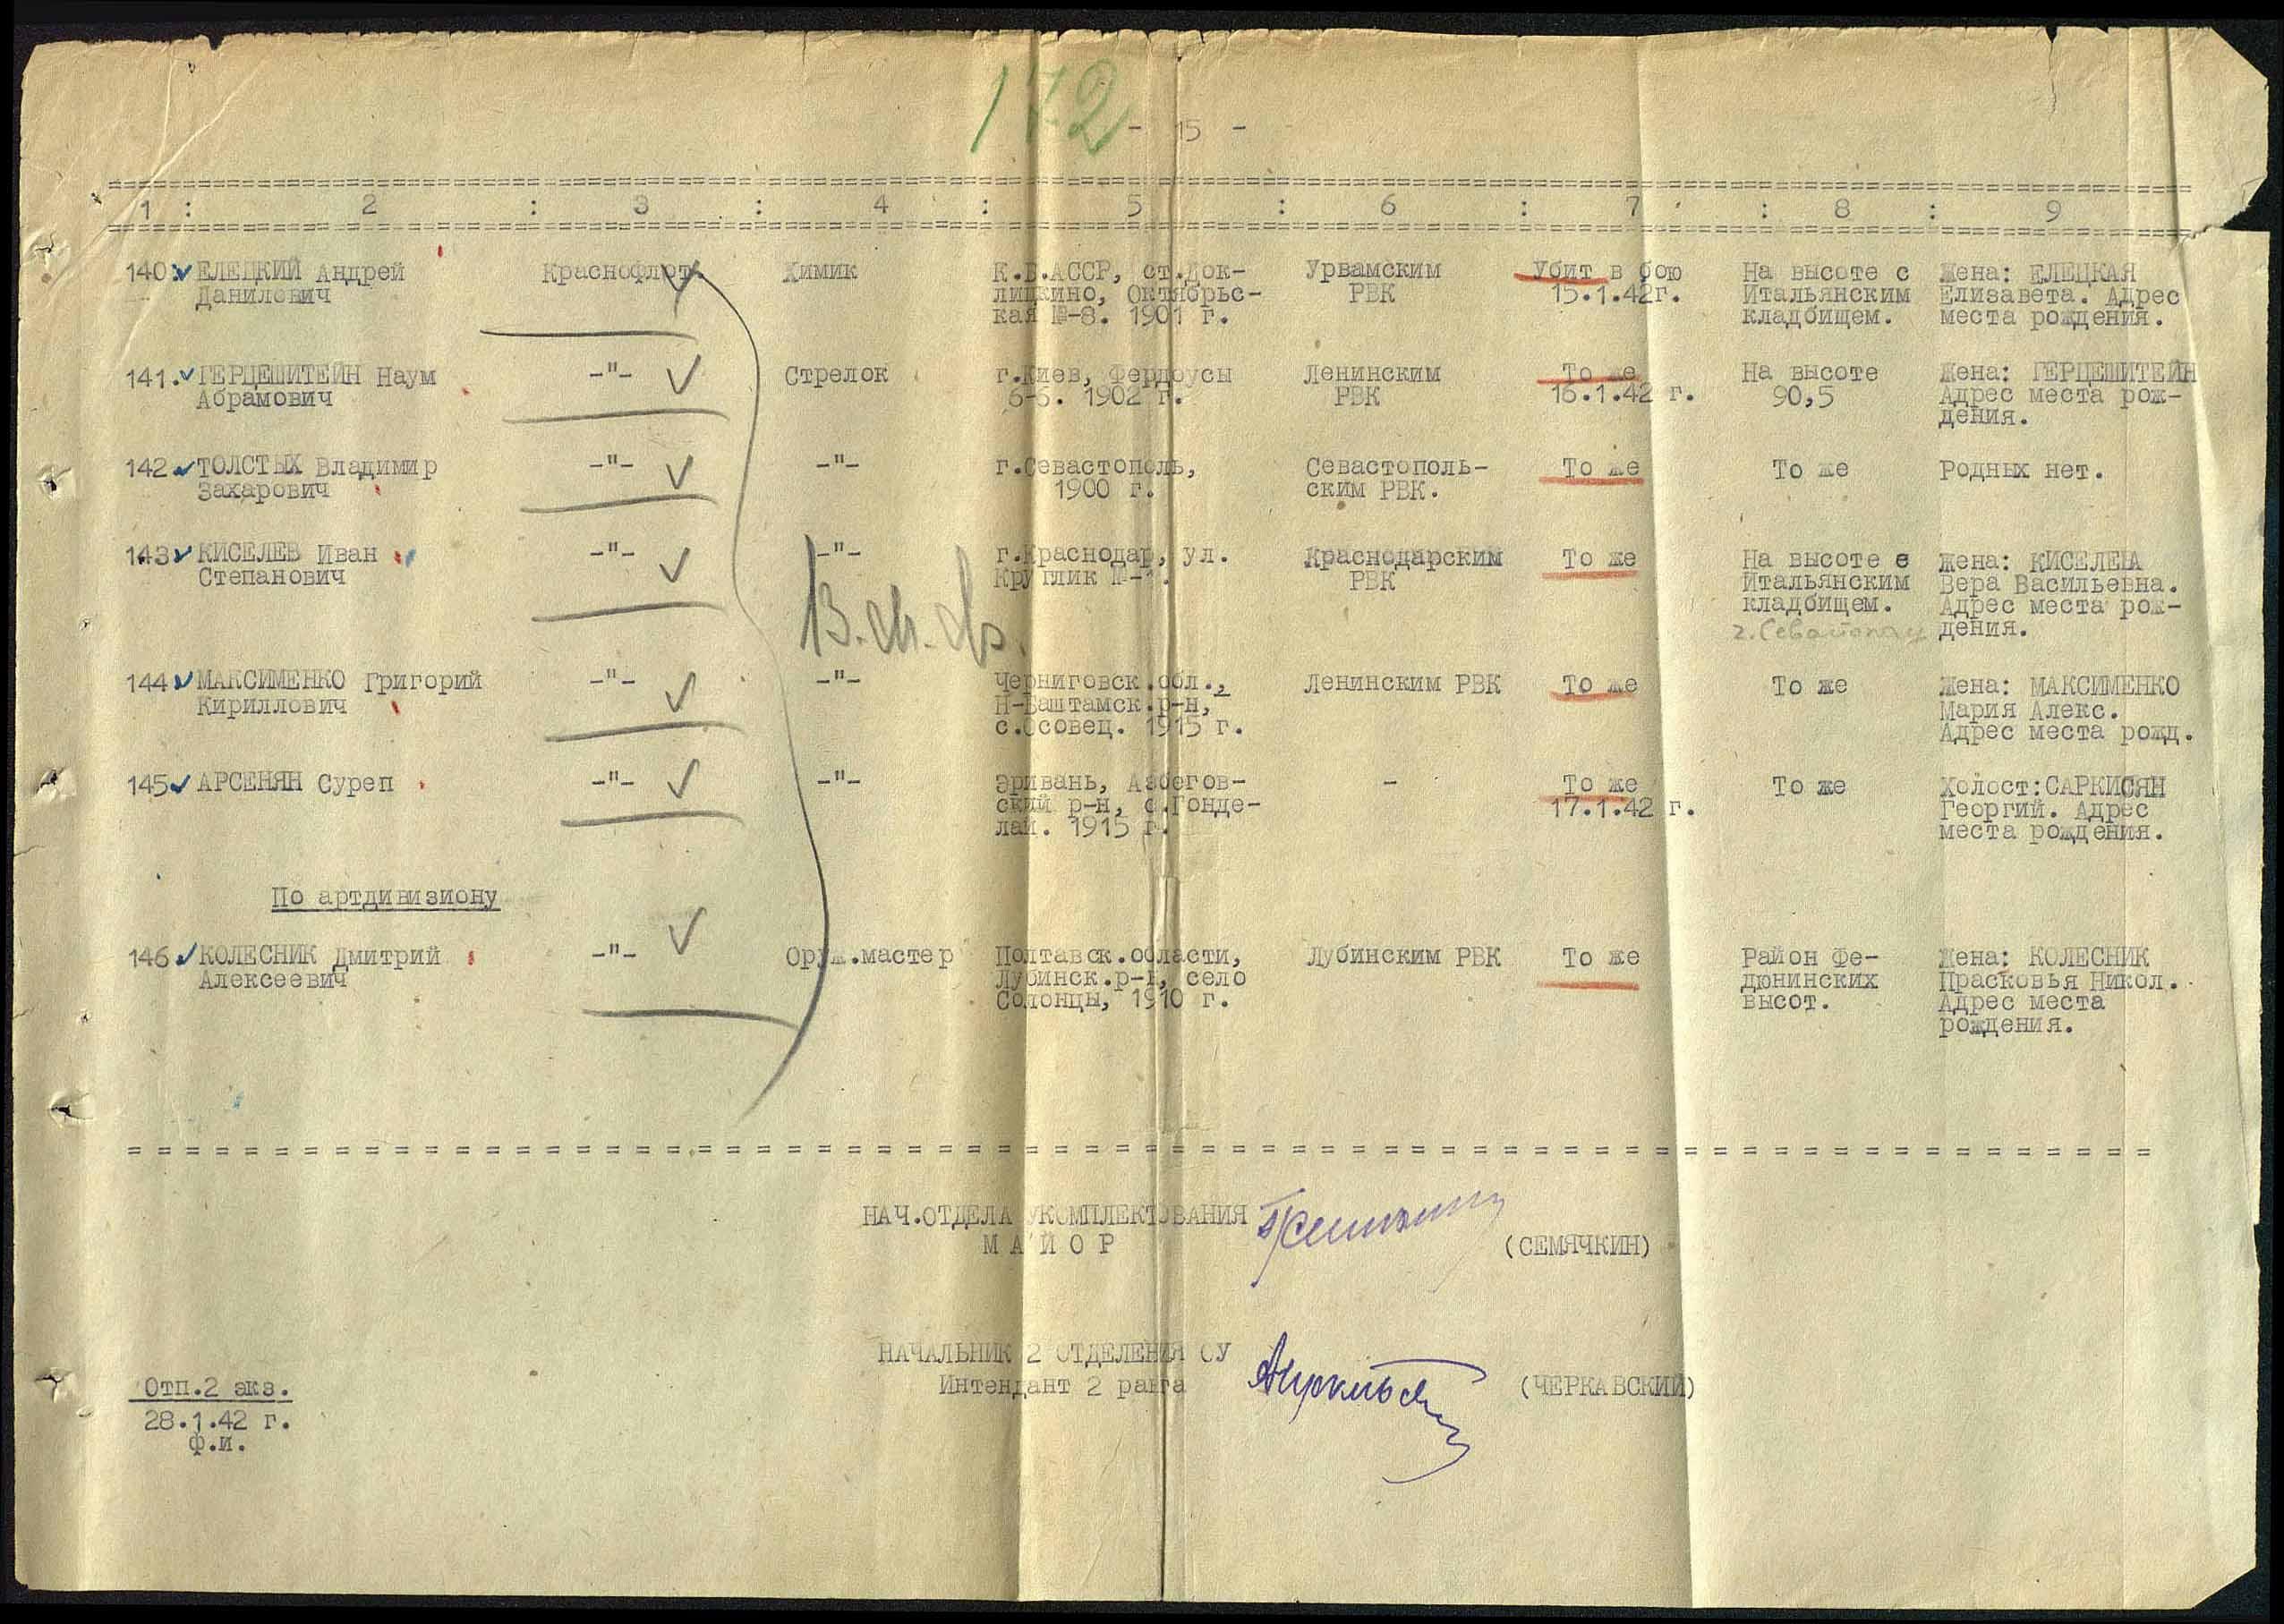 172
- 15 -
1 : 2 : 3 : 4 : 5 : 6 : 7 : 8 : 9
140. ЕЛЕЦКИЙ Андрей Данилович Краснофлот. Химик К.Б.АССР, ст.Док- Урвамским Убит в бою На высоте с Жена: ЕЛЕЦКАЯ
лицкино, Октябрьс- РВК 15.1.42г. Итальянским Елизавета. Адрес
кая №-8. 1901 г. кладбищем. места рождения.
141. ГЕРЦЕШИТЕЙН Наум -"- Стрелок г.Киев, Фердоусы Ленинским То же На высоте Жена: ГЕРЦЕШИТЕЙН
Абрамович 1902 г. РВК 16.1.42 г. 90,5 Адрес места рож-
дения.
142. ТОЛСТЫХ Владимир -"- -"- г.Севастополь, Севастополь- То же То же Родных нет.
Захарович 1900 г. ским РВК.
143. КИСЕЛЕВ Иван -"- -"- г.Краснодар, ул. Краснодарским То же На высоте с Жена: КИСЕЛЕВА
Степанович Круглик №-1. РВК Итальянским Вера Васильевна.
кладбищем. Адрес места рож-
г.Севастополь дения.
144. МАКСИМЕНКО Григорий -"- -"- Черниговск.обл., Ленинским РВК То же То же Жена: МАКСИМЕНКО
Кириллович Н-Баштамск.р-н, Мария Алекс.
с.Осовец. 1915 г. Адрес места рожд.
145. АРСЕНЯН Суреп -"- -"- Эривань, Азбегов- - То же То же Холост:САРКИСЯН
ский р-н, с.Гонде- 17.1.42 г. Георгий. Адрес
лай. 1915 г. места рождения.
По артдивизиону
146. КОЛЕСНИК Дмитрий -"- Оруж.мастер Полтавск.области, Лубинским РВК То же Район Фе- Жена: КОЛЕСНИК
Алексеевич Лубинск.р-н, село дюнинских Прасковья Никол.
Солонцы, 1910 г. высот. Адрес места
рождения.
НАЧ.ОТДЕЛА УКОМПЛЕКТОВАНИЯ
МАЙОР (СЕМЯЧКИН)
НАЧАЛЬНИК 2 ОТДЕЛЕНИЯ ОУ
Интендант 2 ранга (ЧЕРКАВСКИЙ)
Отп.2 экз.
28.1.42 г.
ф.и.